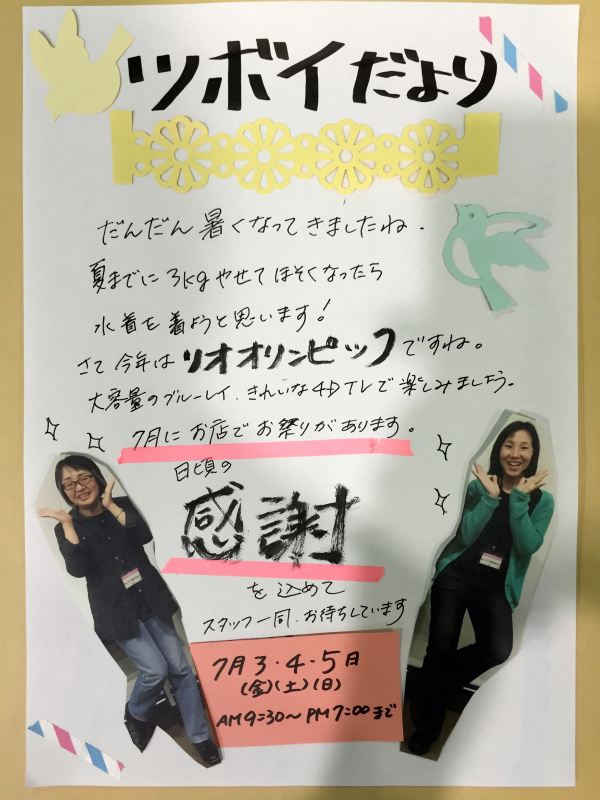 ツボイだより
だんだん暑くなってきましたね.
夏までに3kgやせてほそくなったら
水着を着ようと思います!
さて今年はリオオリンピックですね。
大容量のブルーレイ.きれいな4DTVで楽しみましょう。
7月にお店でお祭りがあります。
日頃の
感謝
を込めて
スタッフ一同.お待ちしています
7月3・4・5日
(金)(土)(日)
AM9:30~PM7:00まで